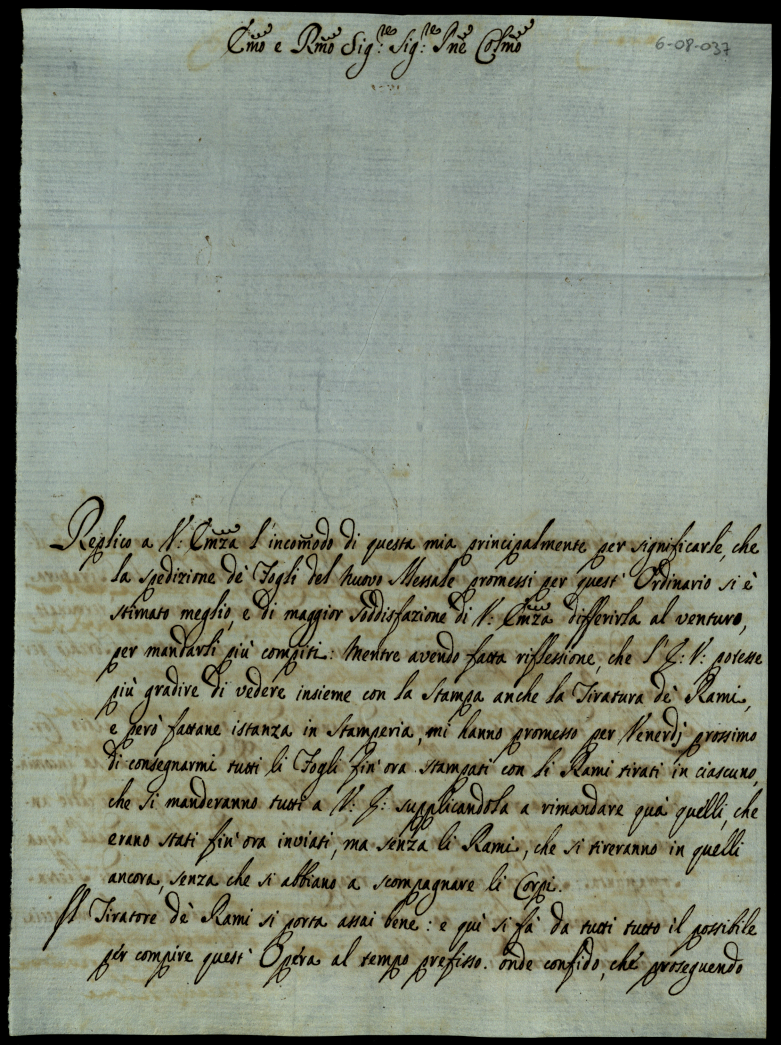 Emo e Rmo Sig.re Sig.re Pne Colmo
6-08-037
Replico a V: Emza l'incommodo di questa mia principalmente per significarle, che
la spedizione dè Fogli del Nuovo Messale promessi per quest' Ordinario si è
stimato meglio, e di maggior soddisfazione di V: Emza differirla al venturo,
per mandarli più compiti: Mentre avendo fatta riflessione, che l' E: V: potesse
più gradire di vedere insieme con la Stampa anche la Tiratura dè Rami,
e però fattane istanza in Stamperia, mi hanno promesso per Venerdj prossimo
di consegnarmi tutti li Fogli fin' ora stampati con li Rami tirati in ciascuno,
che si manderanno tutti a V: E: supplicandola a rimandare quà quelli, che
erano stati fin' ora inviati, ma senza li Rami, che si tireranno in quelli
ancora, senza che si abbiano a scompagnare li Corpi.
Il Tiratore dè Rami si porta assai bene: e quì si fà da tutti tutto il possibile
per compire quest' Opera al tempo prefisso. onde confido, che proseguendo